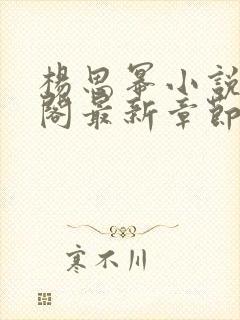 楊思冪小說
閣最新章節
寒不川